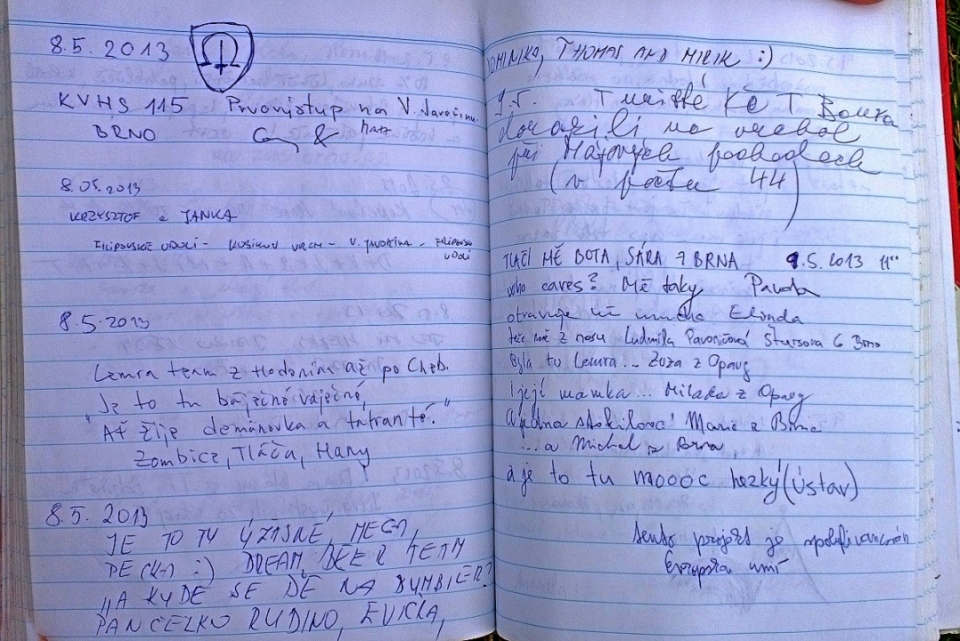 8.5. 2013
KVHS 115 Prvovýstup na V. Javořinu
BRNO &
8.05.2013
KRZYSZTOF a JANKA
FILIPOVSKÉ UDOLÍ - KUSIKOV VRCH - V. JAVOŘINA - FILIPOVSKÉ UDOLÍ
8.5.2013
Lemra team z Hodonína až po Cheb.
"Je to tu báječné váječné,
"Ať žije demänovka a tatranté."
Zombice, Tláča, Hany
8.5. 2013
JE TO TU ÚŽASNÉ, MEGA,
PECKA :) DREAM, BEER TEAM
"A KUDE SE DE NA ĎUMBIER?
PANČELKO RUDINO, EVIČKA,
DOMINIKA, THOMAS AND MIRIK :)
9.5. Turisté KČT Bouza
dorazili na vrchol
při Májových pochodech
(v počtu 44)
TLAČÍ MĚ BOTA, SÁRA 7 BRNA 9.5. 2013 11
who cares? Mě taky Pavda
otravuje už umího Elinda
teče mě z nosu Ludmila Štursova 6 Brno
Byla tu Lemra... Zuza z Opavy
I její mamka... Milada z Opavy
A jedna Marie z Brna
... a Michal z Brna
a je to tu moooc hezký (ústav)
tento projekt je spolufinancován
Evropská unií